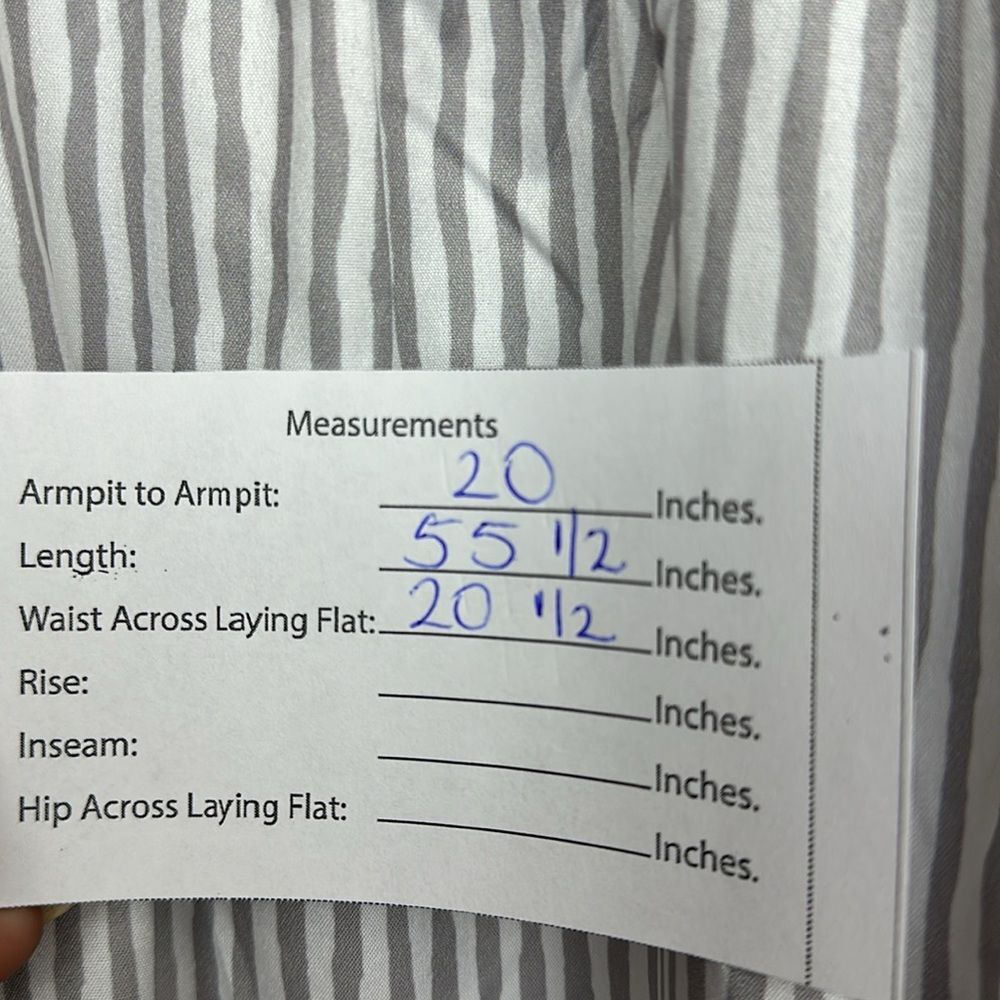 Measurements
Armpit to Armpit: 20 Inches.
Length: 55 1/2 Inches.
Waist Across Laying Flat: 20 1/2 Inches.
Rise: Inches.
Inseam: Inches.
Hip Across Laying Flat: Inches.